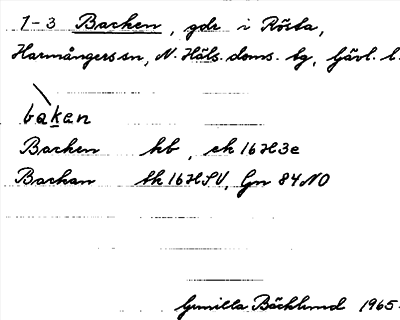 1-3 Backen, gdr i Rösta,
Harmångers sn, N. Häls. doms. tg, Gävl. l.
bakan
Backen kb, ek 16H3e
Backan tk 16HSV, Gn 84NO
Gunilla Bäcklund 1965.